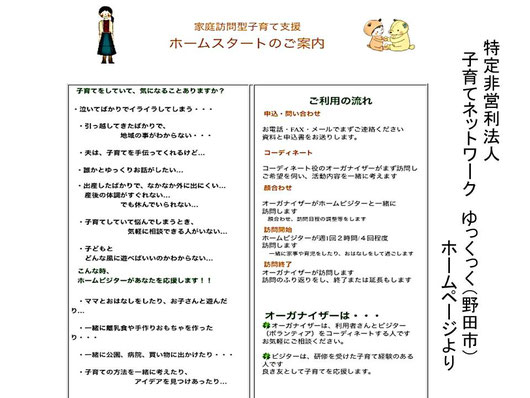 家庭訪問型子育て支援
ホームスタートのご案内
子育てをしていて、気になることありますか?
・泣いてばかりでイライラしてしまう・・・
・引っ越してきたばかりで、
地域の事がわからない・・・
・夫は、子育てを手伝ってくれるけど…
・誰かとゆっくりお話がしたい…
・出産したばかりで、なかなか外に出にくい…
産後の体調がすぐれない…
でも休んでいられない…
・子育てしていて悩んでしまうとき、
気軽に相談できる人がいない…
・子どもと
どんな風に遊べばいいのかわからない…
こんな時、
ホームビジターがあなたを応援します!!
・ママとおはなしをしたり、お子さんと遊んだ
り…
・一緒に離乳食や手作りおもちゃを作った
り・・・
・一緒に公園、病院、買い物に出かけたり・・・
・子育ての方法を一緒に考えたり、
アイデアを見つけあったり…
ご利用の流れ
申込・問い合わせ
お電話・FAX・メールでまずご連絡ください
資料と申込書をお送りします。
コーディネート
コーディネート役のオーガナイザーがまず訪問し
ご希望を伺い、活動内容を一緒に考えます
顔合わせ
オーガナイザーがホームビジターと一緒に
訪問します
顔合わせ、訪問日程の調整等をします
訪問開始
ホームビジターが週1回2時間/4回程度
訪問します
一緒に家事や育児をしたり、おはなしをして過ごします
訪問終了
オーガナイザーが訪問します
訪問のふり返りをし、終了または延長もします
オーガナイザーは・・・
オーガナイザーは、利用者さんとビジター
(ボランティア)をコーディネートする人です
お気軽にご相談ください。
ビジターは、研修を受けた子育て経験のある
人です
良き友として子育てを応援します。
特定非営利法人
子育てネットワーク ゆっくっく(野田市)
ホームページより